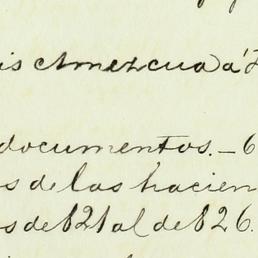 is Amezcua á
documentos. — 6
s de las hacien
s de 821 al de 826.